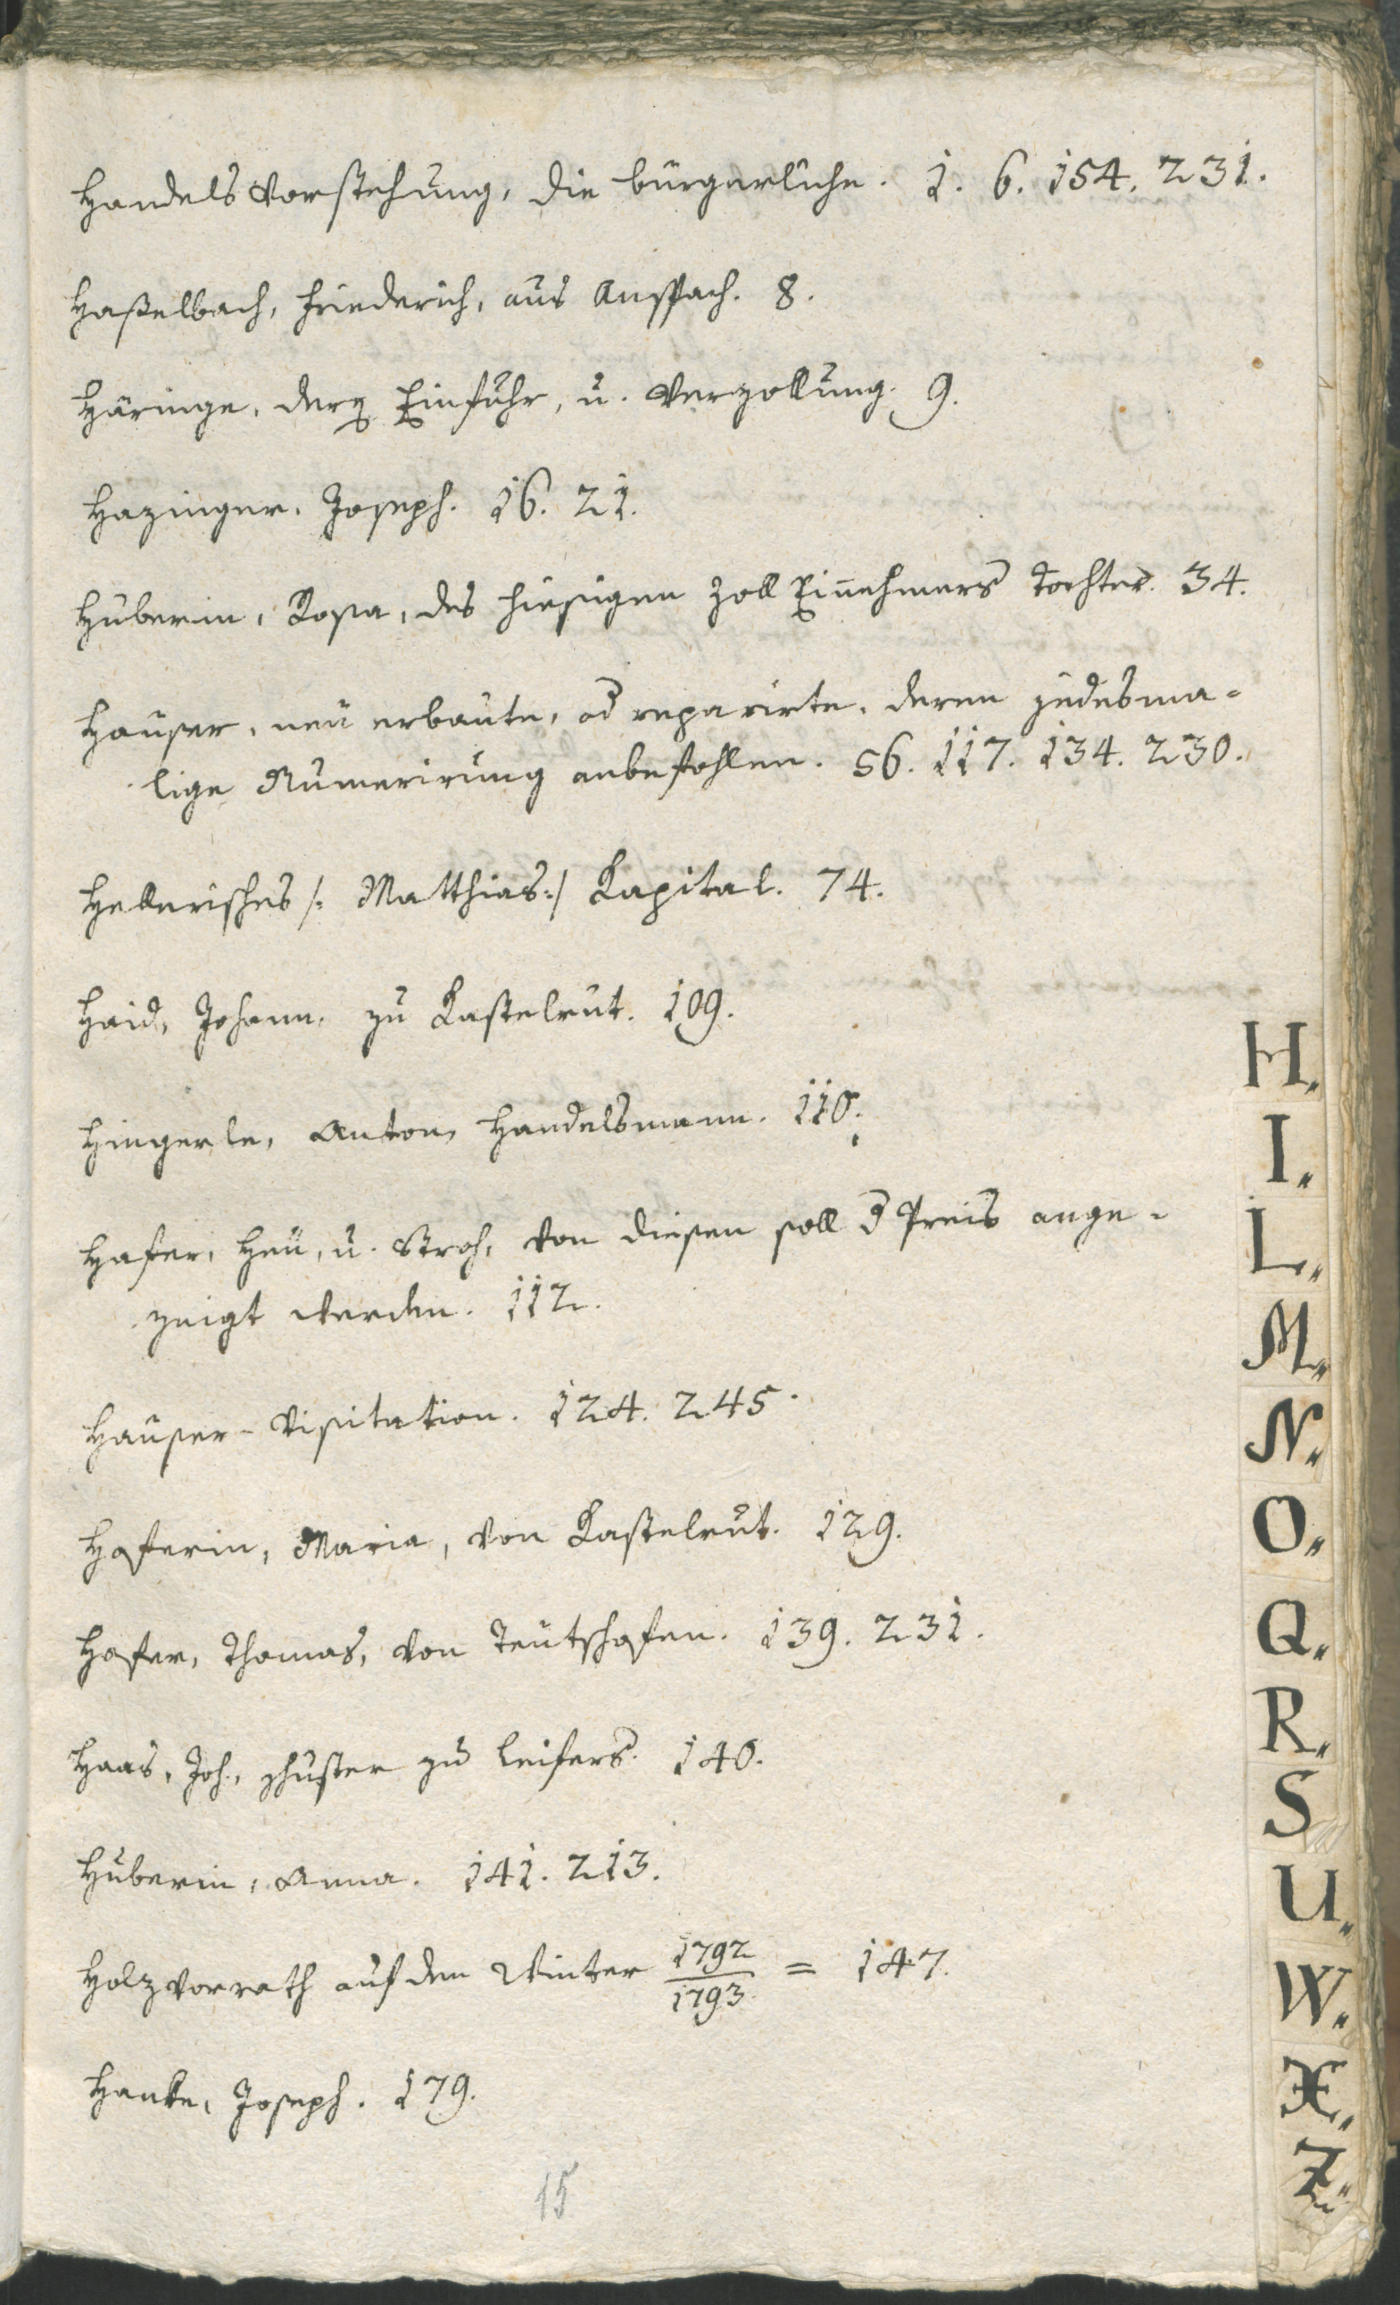 HandelsVorstehung, die bürgerliche. 1. 6. 154. 231.
Haßelbach, Friederich, aus Anspach. 8.
Häringe, der Einfuhr, u. Verzollung. 9.
Hazinger, Joseph. 16. 21.
Huberin, Rosa, des hiesigen Zoll Einnehmers Tochter. 34.
Häuser, neu erbaute, od reparirte, deren jedesma-
lige Numerirung anbefohlen. 56. 117. 134. 230.
Hellerisches /: Matthias :/ Kapital. 74.
Haid, Johann, zu Kastelrut. 109.
Hingerle, Anton, Handelsmann. 110.
Hafer, Heu, u. Stroh, von diesen soll d Preis ange-
zeigt werden. 112.
Häuser-Visitation. 124. 245.
Hoferin, Maria, von Kastelrut. 129.
Hofer, Thomas, von Teutschofen. 139. 231.
Haas, Joh., Schuster zu Leifers. 140.
Huberin, Anna. 141. 213.
Holzvorrath auf den Winter 1792/1793 = 147.
Hanke, Joseph. 179.
15
H.
I.
L.
M.
N.
O.
Q.
R.
S
U.
W.
X.
Z.